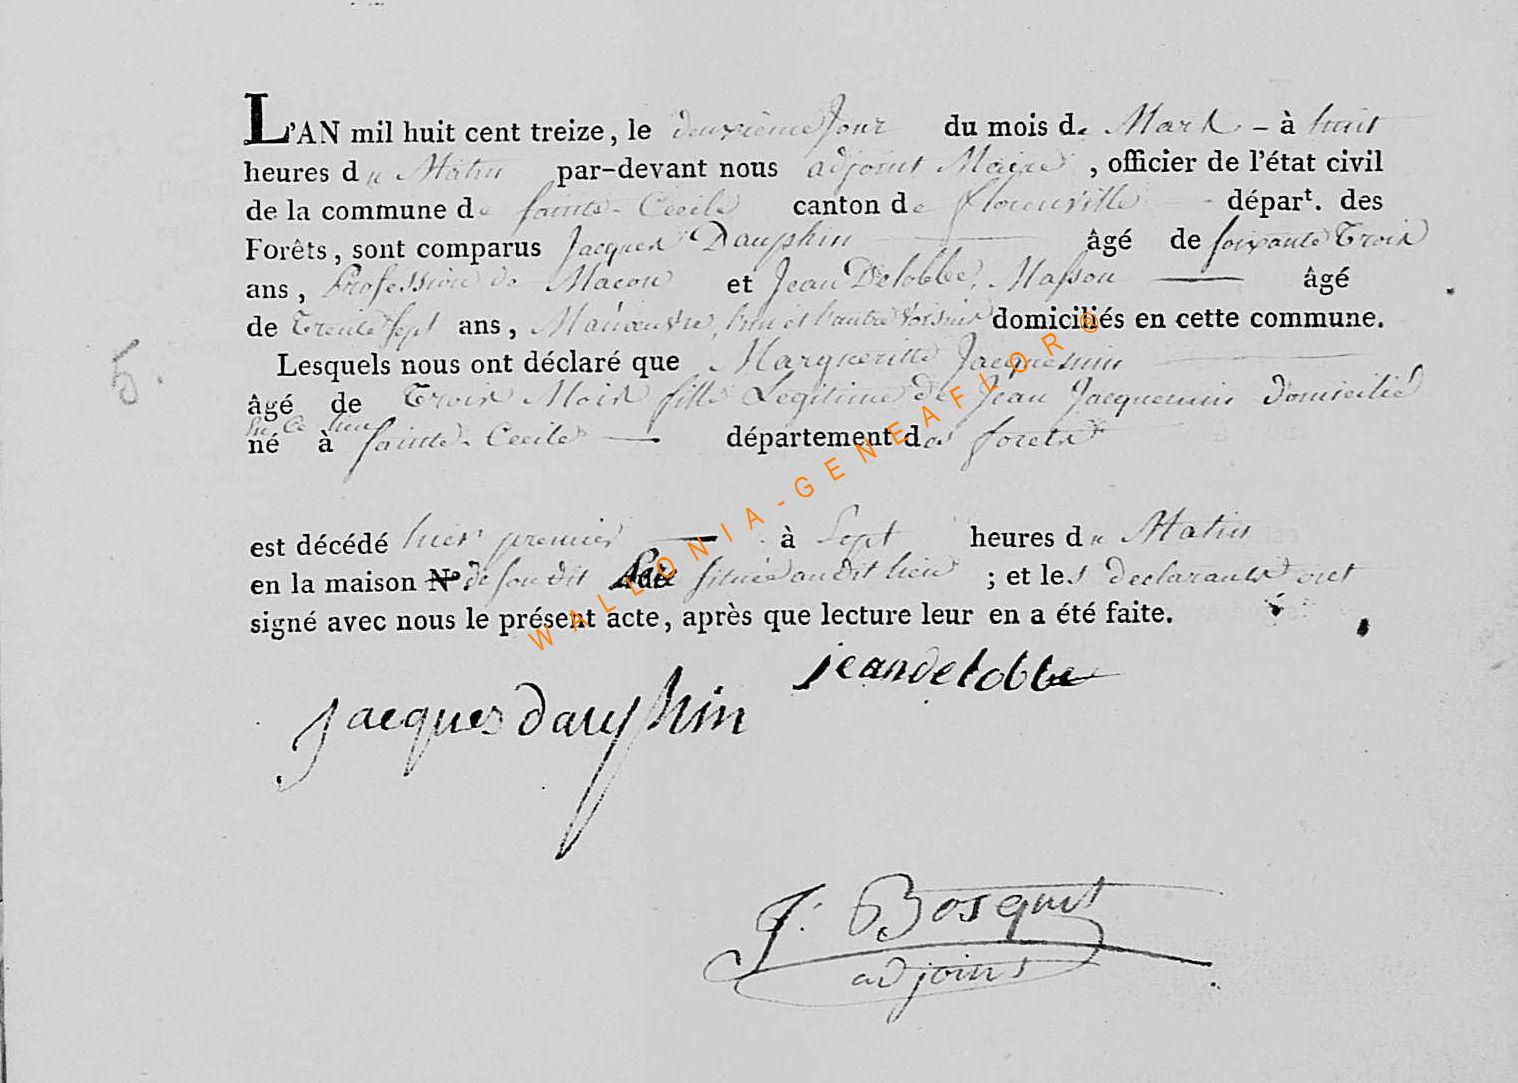 L'AN mil huit cent treize, le deuxième Jour du mois de Mars - à huit
heures du Matin par-devant nous adjoint Maire, officier de l'état civil
de la commune de Sainte-Cecile canton de florenville départ. des
Forêts, sont comparus Jacques Dauphin âgé de soixante Trois
ans, Profession de Macon et Jean Delobbe, Masson âgé
de Trente sept ans, Manœuvre, l'un et l'autre voisins domiciliés en cette commune.
5. Lesquels nous ont déclaré que Margueritte Jacquemin
âgé de Trois Mois fille Legitime de Jean Jacquemin Domicilié
Ce lieu
né à Sainte-Cecile département des forets
est décédé hier premier à Sept heures du Matin
en la maison N° de son dit située au dit lieu ; et les declarants ont
signé avec nous le présent acte, après que lecture leur en a été faite.
jean delobbe
jacques dauphin
J. Bosquet
adjoint
WALLONIA-GENEAFLOR©